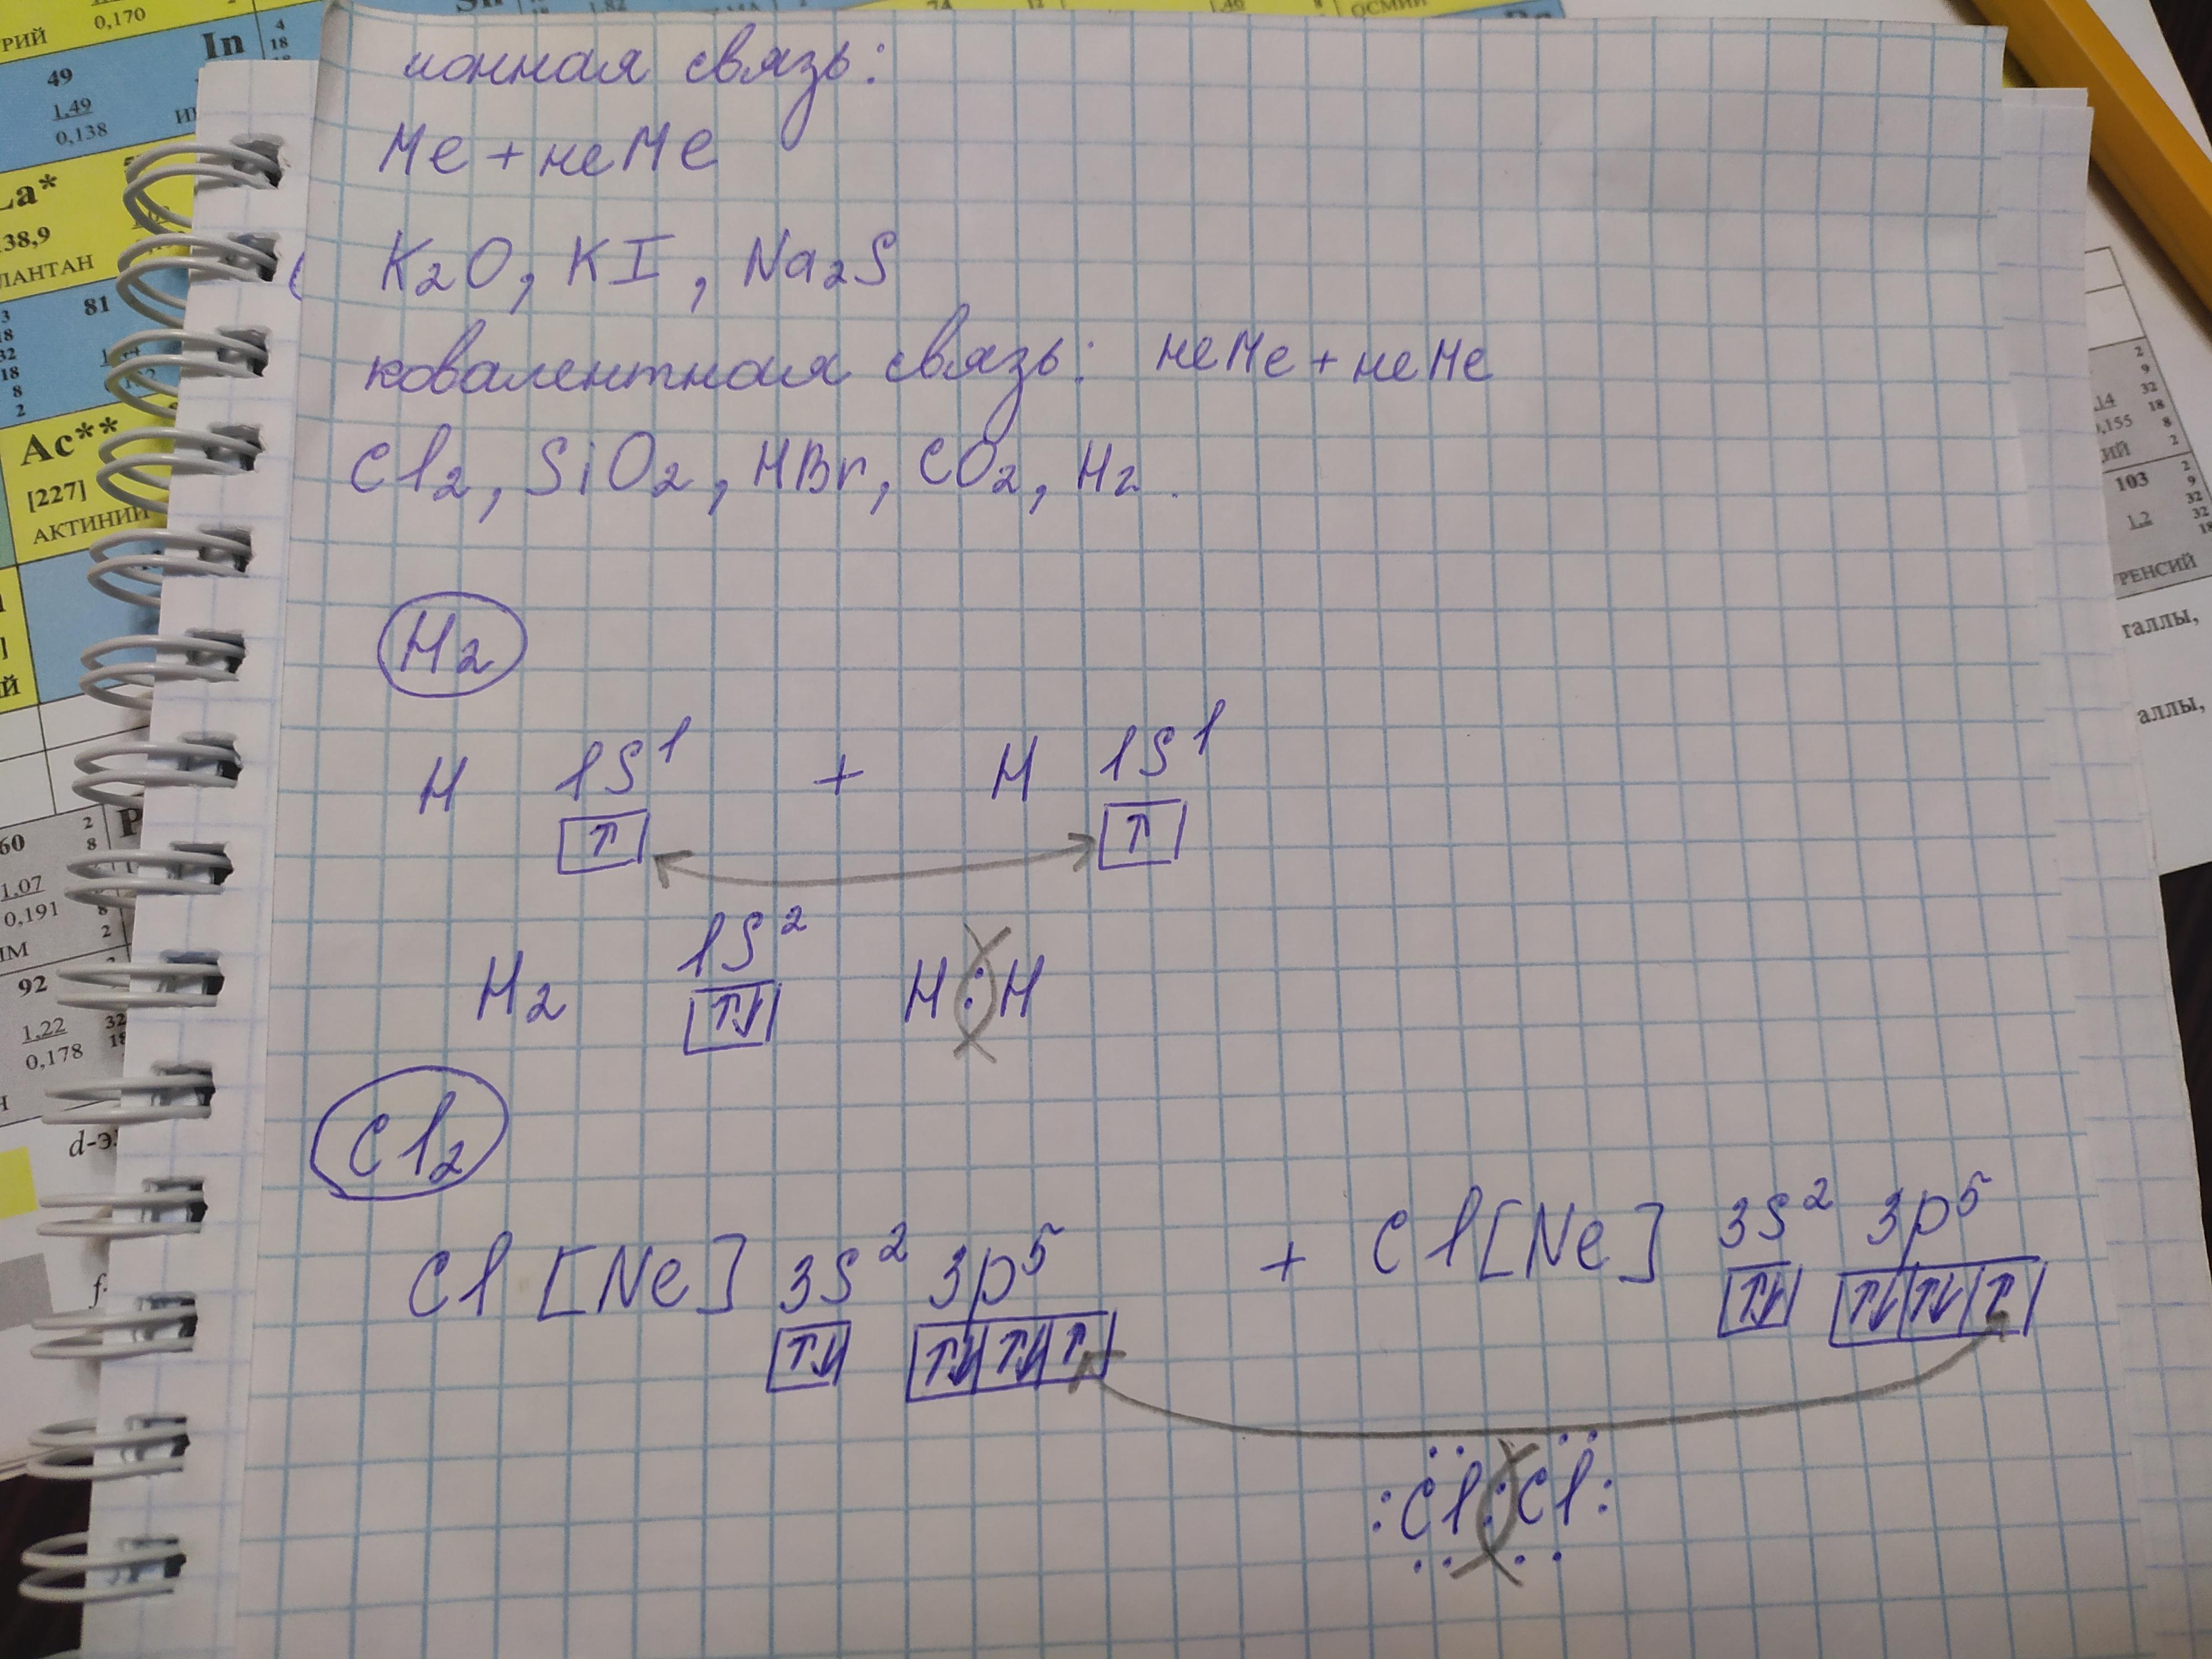 ионная связь:
Me + неMe
K₂O, KI, Na₂S
ковалентная связь: неMe + неMe
Cl₂, SiO₂, HBr, CO₂, H₂.
H₂
H 1S¹ + H 1S¹
↑ ↑
H₂ 1S² H:H
↑↓
Cl₂
Cl [Ne] 3s² 3p⁵ + Cl [Ne] 3s² 3p⁵
↑↓ ↑↓ ↑↓ ↑ ↑↓ ↑↓ ↑↓ ↑
:Cl:Cl:
РИЙ
0,170
In
49
1,49
0,138
4
18
La*
138,9
ЛАНТАН
81
3
18
32
18
8
2
Ac**
[227]
АКТИНИЙ
60
1,07
0,191
2
8
8
2
92
1,22
0,178
32
18
d-э
f-
74
ОСМИЙ
2
9
32
18
8
2
,14
0,155
103
1,2
2
9
32
32
18
УРЕНСИЙ
таллы,
аллы,